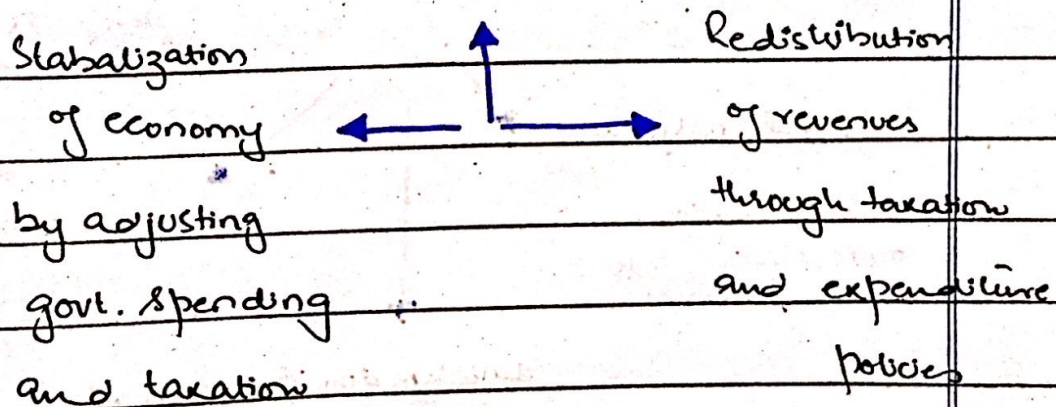 Stabalization
of economy
by adjusting
govt. spending
and taxation
Redistribution
of revenues
through taxation
and expenditure
policies